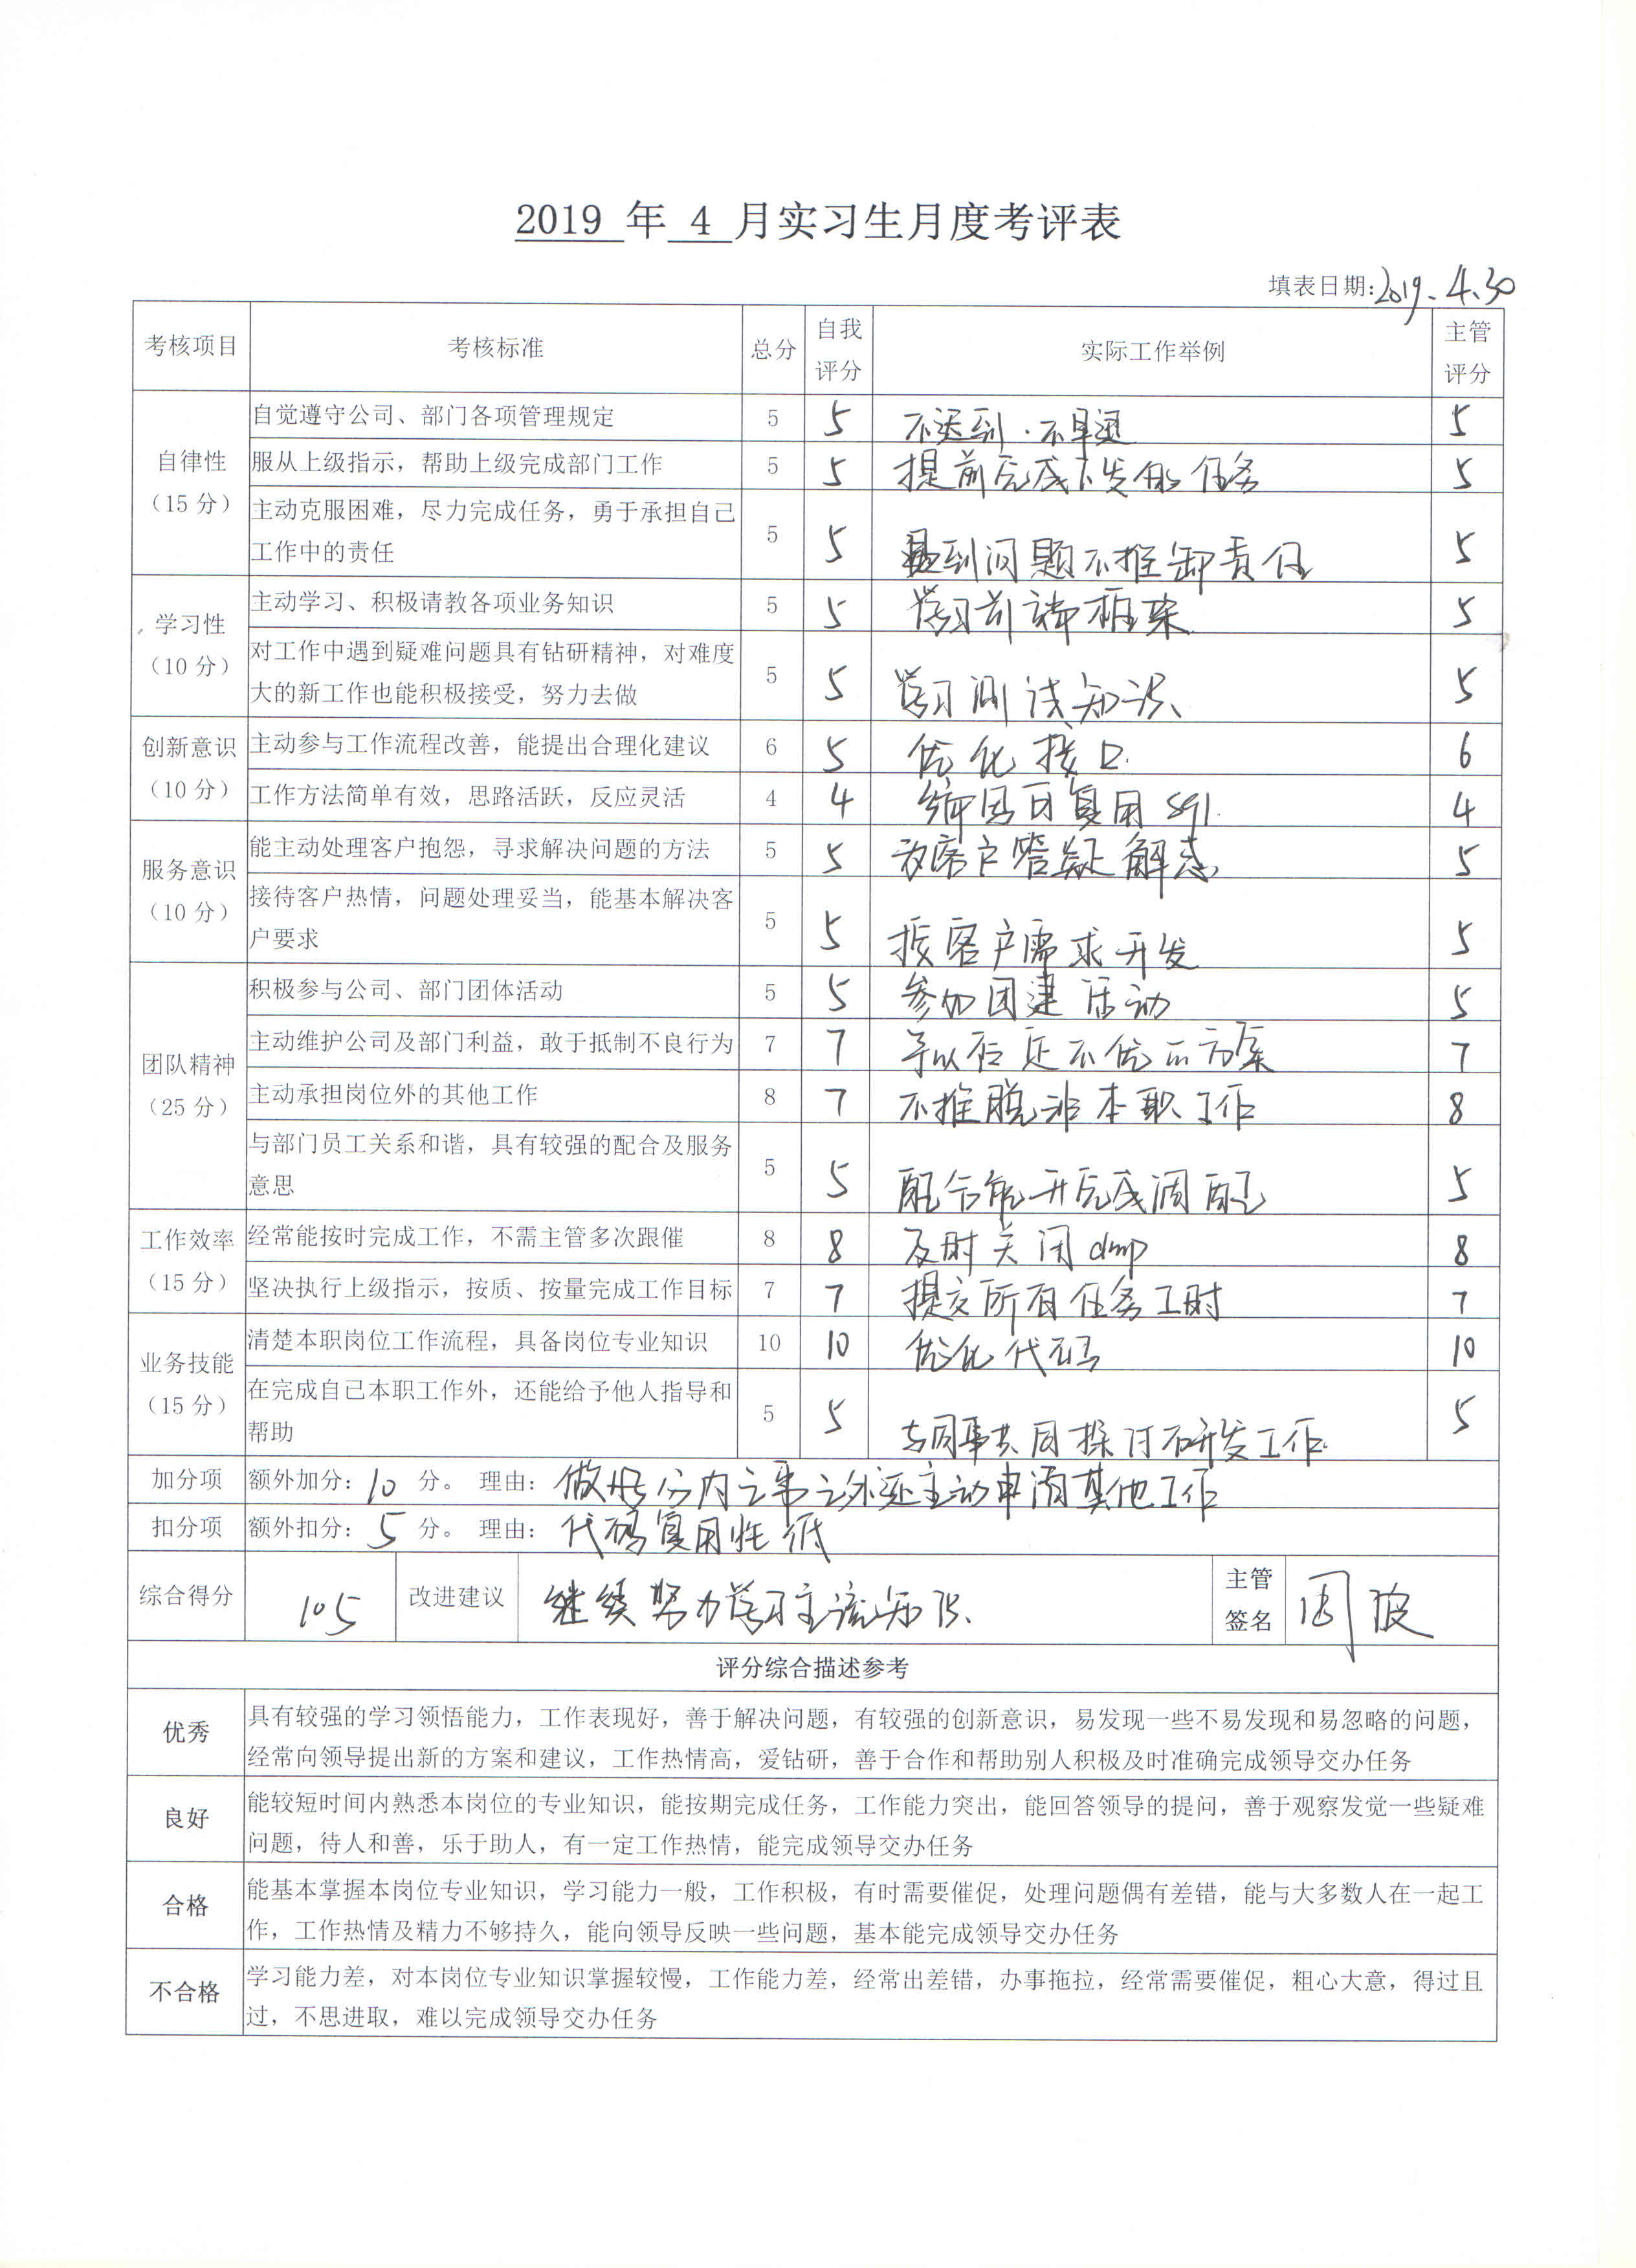 2019 年 4 月实习生月度考评表
填表日期:2019.4.30
考核项目 考核标准 总分 自我评分 实际工作举例 主管评分
自律性（15分）
自觉遵守公司、部门各项管理规定 5 5 不迟到.不早退 5
服从上级指示，帮助上级完成部门工作 5 5 提前完成下发的任务 5
主动克服困难，尽力完成任务，勇于承担自己
工作中的责任 5 5 遇到问题不推卸责任 5
学习性（10分）
主动学习、积极请教各项业务知识 5 5 学习前端框架 5
对工作中遇到疑难问题具有钻研精神，对难度
大的新工作也能积极接受，努力去做 5 5 学习测试知识、 5
创新意识（10分）
主动参与工作流程改善，能提出合理化建议 6 5 优化接口. 6
工作方法简单有效，思路活跃，反应灵活 4 4 可复用sql. 4
服务意识（10分）
能主动处理客户抱怨，寻求解决问题的方法 5 5 为客户答疑解惑 5
接待客户热情，问题处理妥当，能基本解决客
户要求 5 5 按客户需求开发 5
团队精神（25分）
积极参与公司、部门团体活动 5 5 参加团建活动 5
主动维护公司及部门利益，敢于抵制不良行为 7 7 予以否定不优的方案 7
主动承担岗位外的其他工作 8 7 不推脱非本职工作 8
与部门员工关系和谐，具有较强的配合及服务
意思 5 5 配合 完成调配 5
工作效率（15分）
经常能按时完成工作，不需主管多次跟催 8 8 及时关闭dmp 8
坚决执行上级指示，按质、按量完成工作目标 7 7 提交所有任务工时 7
业务技能（15分）
清楚本职岗位工作流程，具备岗位专业知识 10 10 优化代码 10
在完成自己本职工作外，还能给予他人指导和
帮助 5 5 与同事共同探讨研发工作. 5
加分项 额外加分: 10 分。 理由: 做好分内之事之外还主动申请其他工作
扣分项 额外扣分: 5 分。 理由: 代码复用性低
综合得分 105 改进建议 继续努力学习主流知识、 主管签名 周波
评分综合描述参考
优秀
具有较强的学习领悟能力，工作表现好，善于解决问题，有较强的创新意识，易发现一些不易发现和易忽略的问题，
经常向领导提出新的方案和建议，工作热情高，爱钻研，善于合作和帮助别人积极及时准确完成领导交办任务
良好
能较短时间内熟悉本岗位的专业知识，能按期完成任务，工作能力突出，能回答领导的提问，善于观察发觉一些疑难
问题，待人和善，乐于助人，有一定工作热情，能完成领导交办任务
合格
能基本掌握本岗位专业知识，学习能力一般，工作积极，有时需要催促，处理问题偶有差错，能与大多数人在一起工
作，工作热情及精力不够持久，能向领导反映一些问题，基本能完成领导交办任务
不合格
学习能力差，对本岗位专业知识掌握较慢，工作能力差，经常出差错，办事拖拉，经常需要催促，粗心大意，得过且
过，不思进取，难以完成领导交办任务